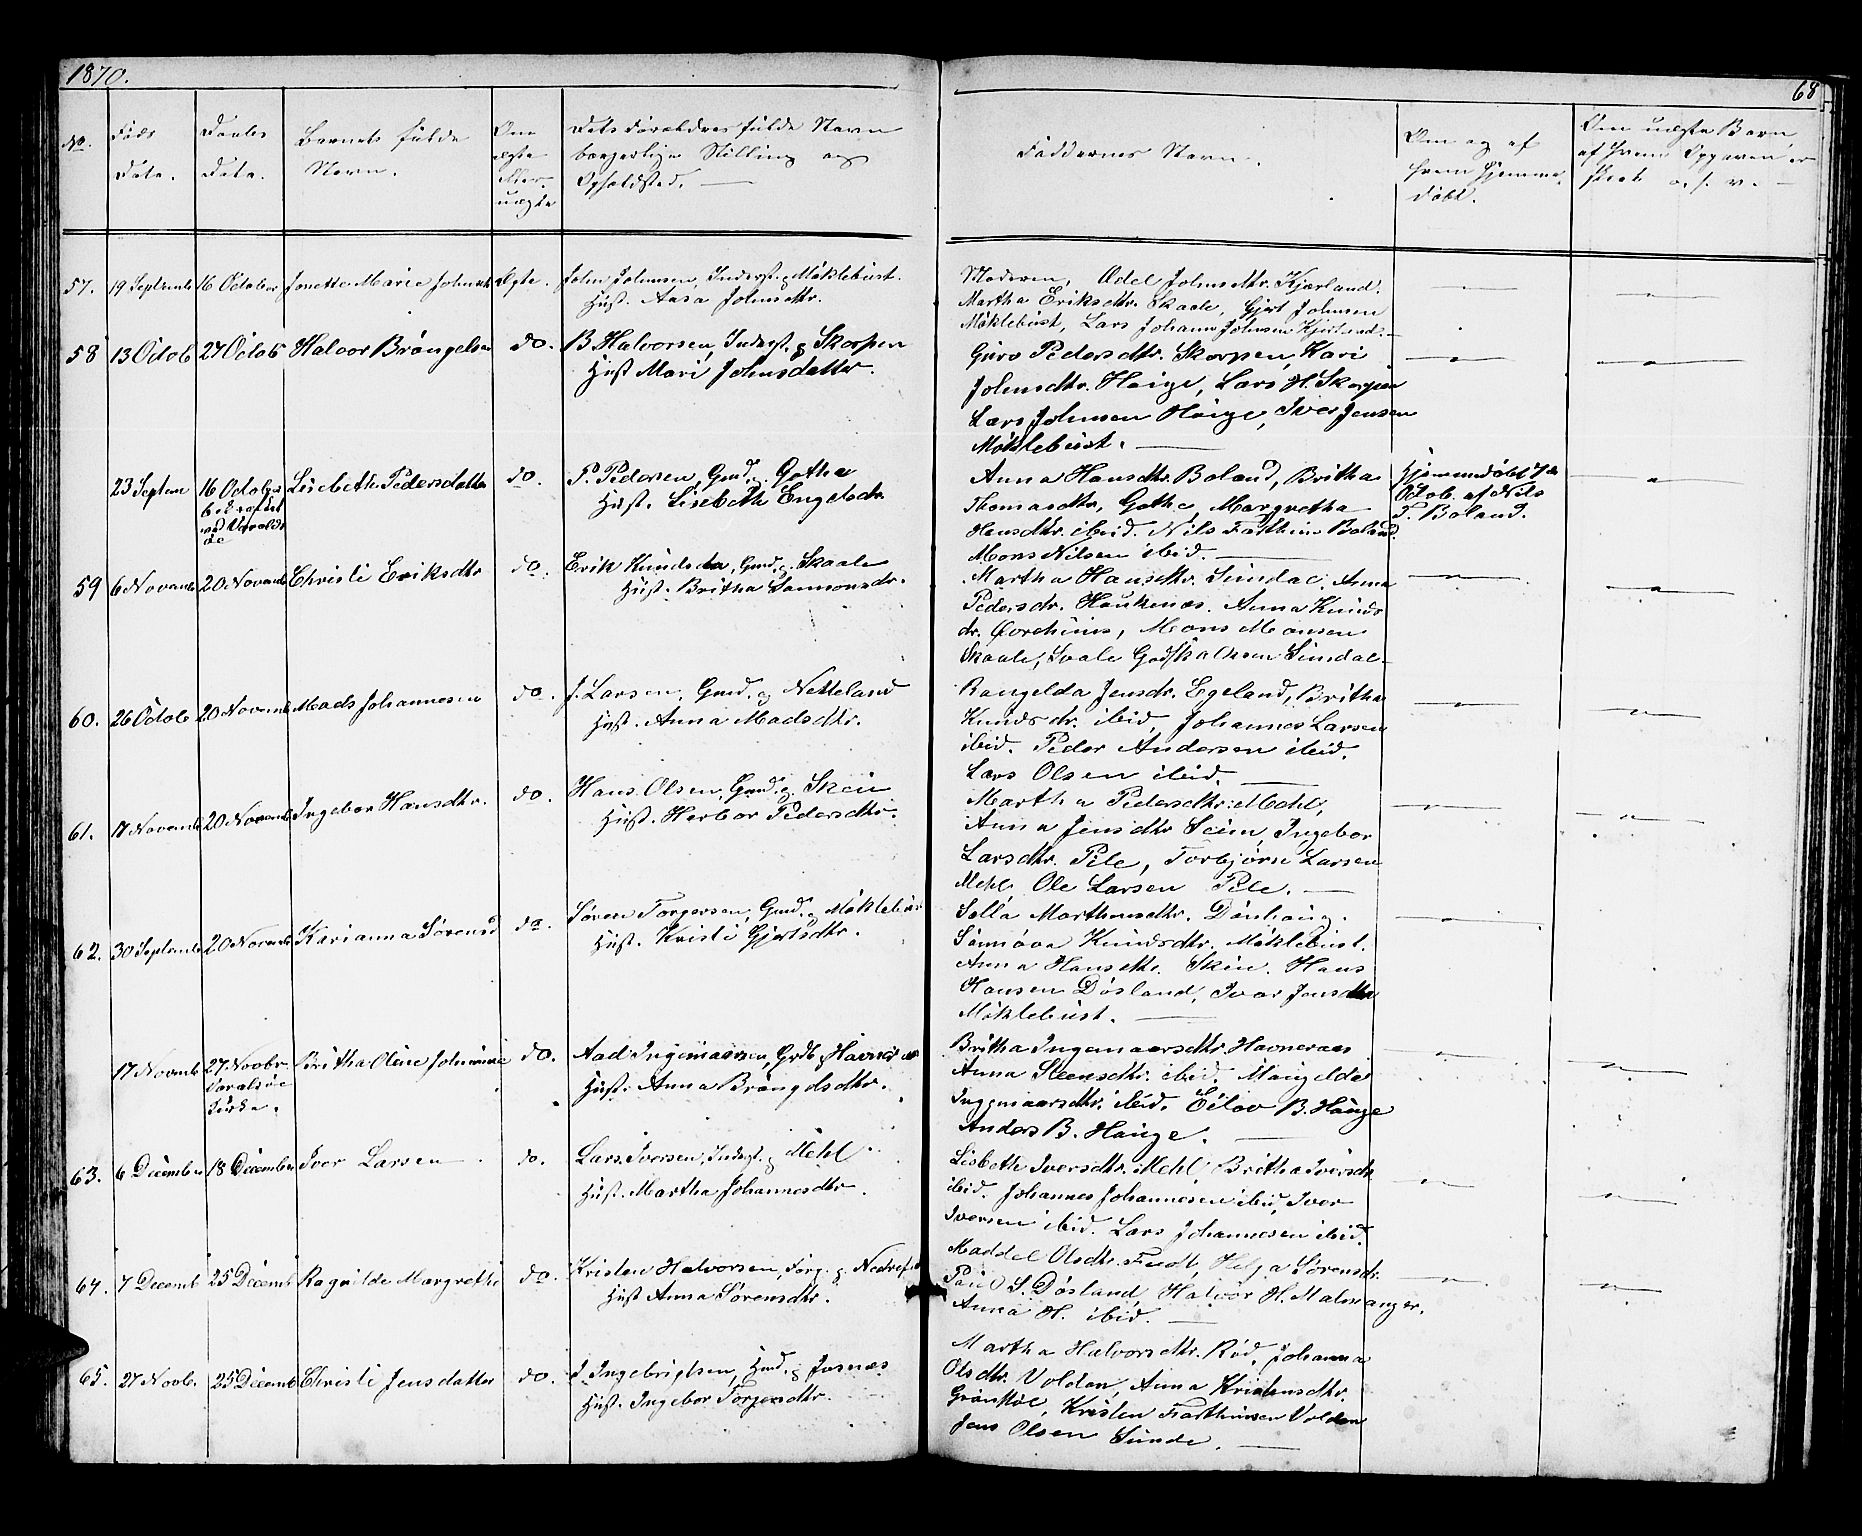 1870.
68
No.
Føds
Data.
Døbes
Data.
Barnets fulde
Navn.
Om
ægte
eller
uægte
Dets Forældres fulde Navn
borgerlige Stilling og
Opholdsted.
Faddernes Navn.
Om og af
hvem hjemme-
døbt.
Om uægte Barn,
af hvem Opgaven er
skeet o. s. v.
57. 19 Septemb 16 October Jonette Marie Johnsdr Ægte. John Johnsen, Inderst. Møklebust.
Hust. Aasa Johnsdtr.
Moderen, Ædel Johnsdtr. Kjærland.
Martha Eriksdtr. Skaale, Gjert Johnsen
Møklebust, Lars Johannes Johnsen Kjærland.
58 13 Octob 27 Octob Halvor Brøngelsen do. B. Halvorsen, Inderst. Skorpen
Hust Mari Johnsdatter.
Guro Pedersdtr. Skorpen, Kari
Johnsdtr. Hauge, Lars H. Skorpen
Lars Johnsen Hauge, Iver Jensen
Møklebust.
23 Septem 16 October Lisebeth Pedersdatter do. P. Pedersen, Gmd. Gothe
Hust. Lisebeth Engelsdr.
Anna Hansdtr. Boland, Britha
Thomasdtr. Gothe, Margretha
Hansdtr. ibid. Nils Farthein Boland
Mons Nilsen ibid.
Hjemmedøbt
Octob. af Nils
F. Boland.
59 6 Novemb 20 Novemb Christi Eriksdtr do. Erik Knudsen, Gmd. Skaale
Hust. Britha Samsonsdr.
Martha Hansdtr. Sundal, Anna
Pedersdr. Haukenæs. Anna Knuds
dr. Mons Monsen
Skaale, Godskalksen Sundal
60. 26 Octob 20 Novemb Mads Johannesen do. J. Larsen, Gmd. og Netteland
Hust. Anna Madsdtr.
Rangelda Jensdr. Egeland, Britha
Knudsdr. ibid, Johannes Larsen
ibid. Peder Andersen ibid.
Lars Olsen ibid.
61. 17 Novemb 20 Novemb Ingebor Hansdtr. do. Hans Olsen, Gmd. og Skeie
Hust. Herbor Pedersdtr.
Martha Pedersdtr. Mehl,
Anna Jensdtr Seim, Ingebor
Larsdtr. Pile, Torbjørn Larsen
Mehl Ole Larsen Pile.
62. 30 Septemb 20 Novemb Karianna Sørensd do. Søren Torgersen, Gmd. og Møklebust
Hust. Kristi Gjertsdtr.
Sella Marthinsdtr. Dønhaug.
Sønnøva Knudsdtr. Møklebust.
Anna Hansdtr. Skeie. Hans
Hansen Døsland, Ivar Jensen
Møklebust.
17 Novemb 27 Novbr Britha Oline Johannie do. Aad Ingemarsen, Grdb. Havneraas
Varaldsøe
Kirke.
Hust. Anna Brøngelsdtr.
Britha Ingemaarsdtr. Havneraas
Anna Steensdtr. ibid. Mangelda
Ingemaarsdtr. ibid. Eilov B. Hauge
Anders B. Hauge.
63. 6 December 18 December Iver Larsen do. Lars Iversen, Inderst. og Mehl
Hust. Martha Johannesdtr.
Lisbeth Iversdtr. Mehl, Britha Iversdr
ibid. Johannes Johannesen ibid, Iver
Iversen ibid. Lars Johannesen ibid.
64. 7 Decemb 25 Decemb Ragnilde Margrethe do. Kristen Halvorsen,
Hust Anna Sørensdtr.
Maddel Olsdtr. Helga Sørensdr.
S. Døsland, Halvor H. Malmanger.
Anna H. ibid.
65. 27 Novb. 25 Decemb Christi Jensdatter do. J. Ingebrigtsen, Hmd. og Josnæs
Hust. Ingebor Torgersdtr.
Martha Halvorsdtr. Rød, Johanna
Olsdtr. Volden, Anna Kristensdtr.
Kristen Farthinsen Volden
Jens Olsen Sunde.